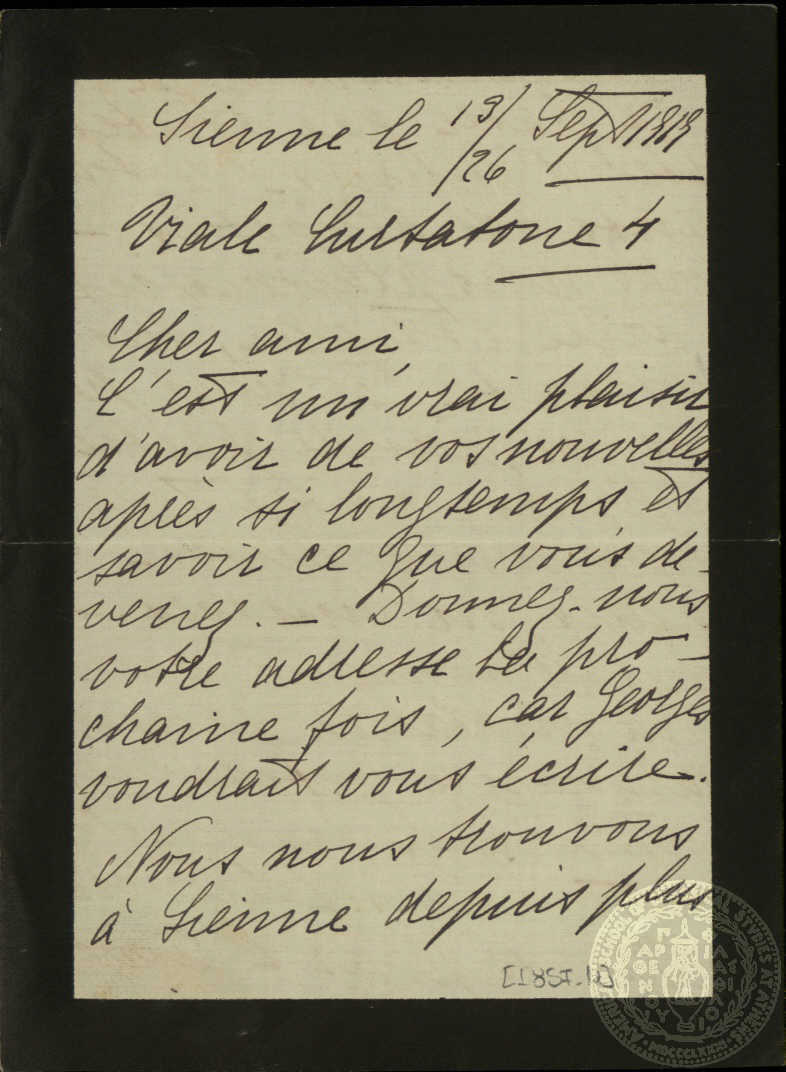 Sienne le 13/26 Sept 1919
Viale Curtatone 4
Cher ami,
C'est un vrai plaisir
d'avoir de vos nouvelles
après si longtemps et
savoir ce que vous de-
venez. — Donnez-nous
votre adresse la pro-
chaine fois, car Georges
voudrait vous écrire.
Nous nous trouvons
à Sienne depuis plus